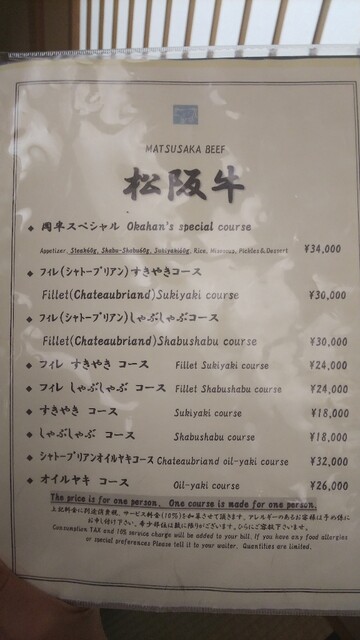 MATSUSAKA BEEF
松阪牛
◆ 岡半スペシャル Okahan's special course
Appetizer, Steak60g, Shabu-Shabu60g, Sukiyaki60g, Rice, Misosoup, Pickles & Dessert ¥34,000
◆ フィレ(シャトーブリアン)すきやきコース
Fillet(Chateaubriand)Sukiyaki course ¥30,000
◆ フィレ(シャトーブリアン)しゃぶしゃぶコース
Fillet(Chateaubriand)Shabushabu course ¥30,000
◆ フィレ すきやき コース Fillet Sukiyaki course ¥24,000
◆ フィレ しゃぶしゃぶ コース Fillet Shabushabu course ¥24,000
◆ すきやき コース Sukiyaki course ¥18,000
◆ しゃぶしゃぶ コース Shabushabu course ¥18,000
◆ シャトーブリアンオイルヤキコース Chateaubriand oil-yaki course ¥32,000
◆ オイルヤキ コース Oil-yaki course ¥26,000
The price is for one person. One course is made for one person.
上記料金に別途消費税、サービス料金(10%)を加算させて頂きます。アレルギーのあるお客様は予め係に
お申し付け下さい。希少部位は数に限りがございます。ひらにご容赦下さいませ。
Consumption TAX and 10% service charge will be added to your bill. If you have any food allergies
or special preferences Please tell it to your waiter. Quantities are limited.